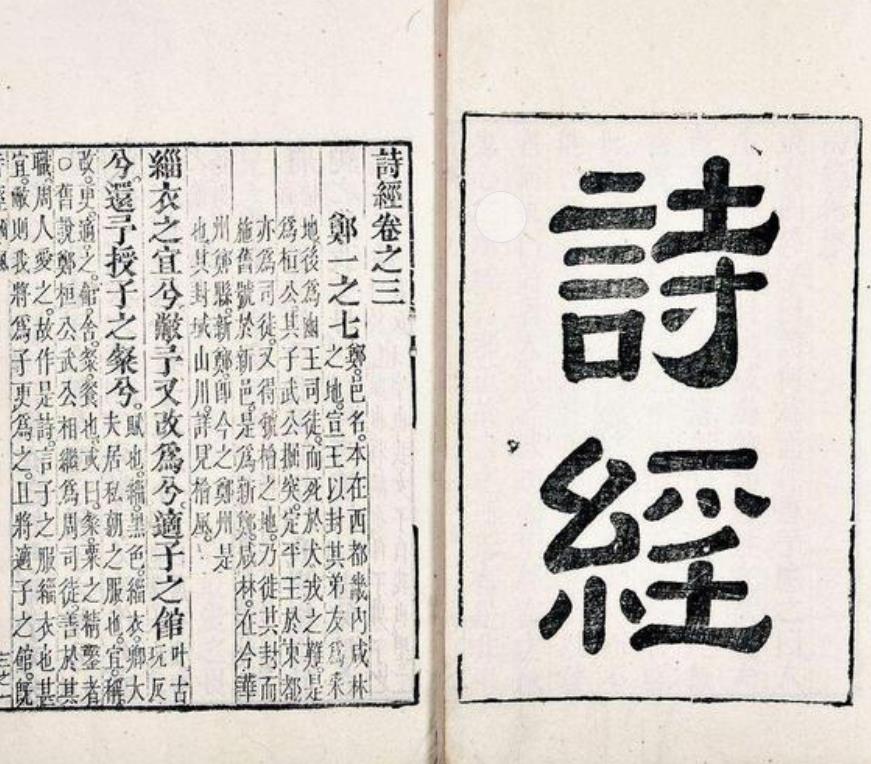 詩經
詩經卷之三
鄭一之七 鄭。邑名。本在西都畿內咸林
之地。宣王以封其弟友。爲采
地。後爲幽王司徒。而死於犬戎之難。是
爲桓公。其子武公掘突。定平王於東都。
亦爲司徒。又得虢檜之地。乃徙其封。而
施舊號於新邑。是爲新鄭。咸林。在今華
州鄭縣。新鄭。卽今之鄭州是
也。其封域山川。詳見檜風。
緇衣之宜兮。敝予又改爲兮。適子之館 叶古
玩反
兮。還予授子之粲兮。 賦也。緇。黑色。緇衣。卿大
夫居私朝之服也。宜。稱。
改。更。適。之。館。舍。粲。餐也。或曰。粲。粟之精鑿者。
○舊說鄭桓公武公相繼爲周司徒。善於其
職。周人愛之。故作是詩。言子之服緇衣也甚
宜。敝則我將爲子更爲之。且將適子之館。旣